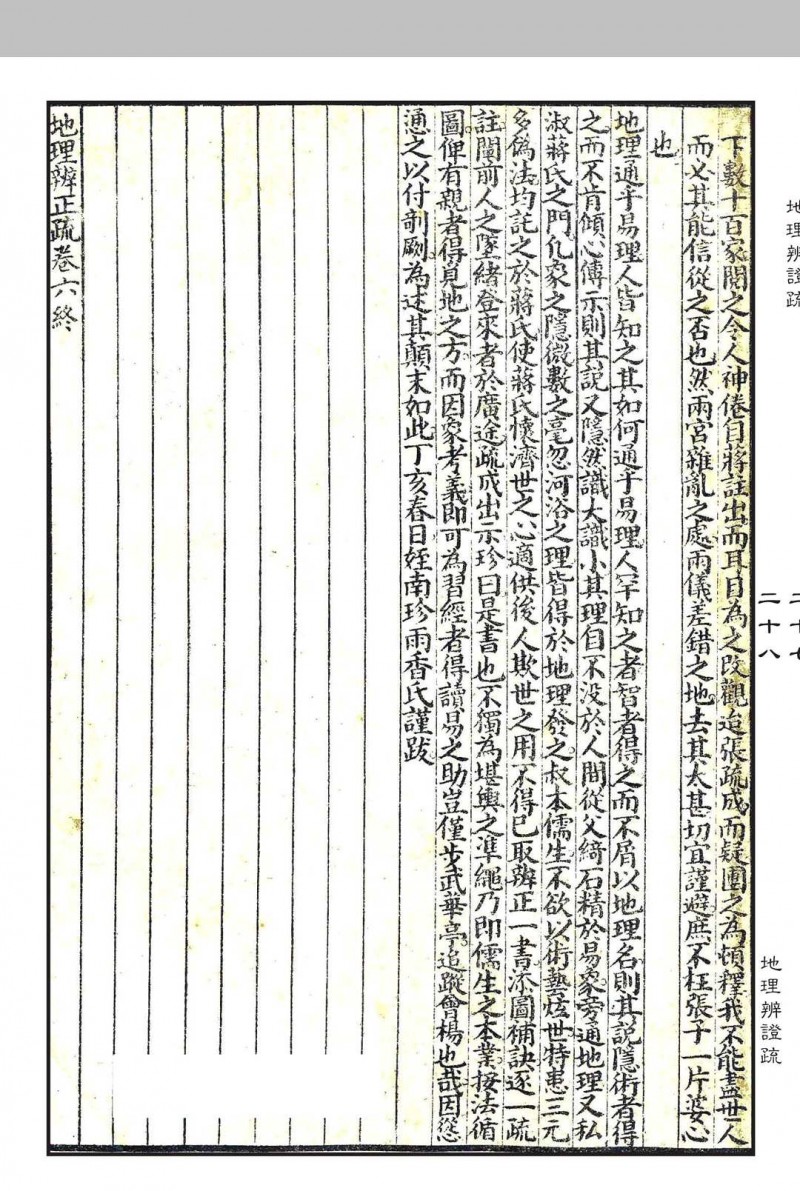 下數十百家閱之令人神倦自蔣註出而耳目為之改觀迨張疏成而疑團之為頓釋我不能盡世人
而必其能信從之否也然兩宮雜亂之處兩儀差錯之地去其太甚切宜謹避庶不枉張子一片婆心
也
地理通乎易理人皆知之其如何通乎易理人罕知之者智者得之而不屑以地理名則其說隱術者得
之而不肯傾心傳示則其說又隱然識大識小其理自不没於人間從父綺石精於易象旁通地理又私
淑蔣氏之門凡象之隱微數之毫忽河洛之理皆得於地理發之叔本儒生不欲以術藝炫世特患三元
多偽法均託之於蔣氏使蔣氏懷濟世之心適供後人欺世之用不得已取辨正一書添圖補訣逐一疏
註闡前人之墜緒登來者於廣途疏成出示珍曰是書也不獨為堪輿之準繩乃即儒生之本業按法循
圖俾有親者得覓地之方而因象考義即可為習經者得讀易之助豈僅步武華亭追蹤曾楊也哉因慫
慂之以付剞劂為述其顛末如此丁亥春日姪南珍雨香氏謹跋
地理辨正疏卷六終
地理辨證疏
二十七
二十八
地理辨證疏